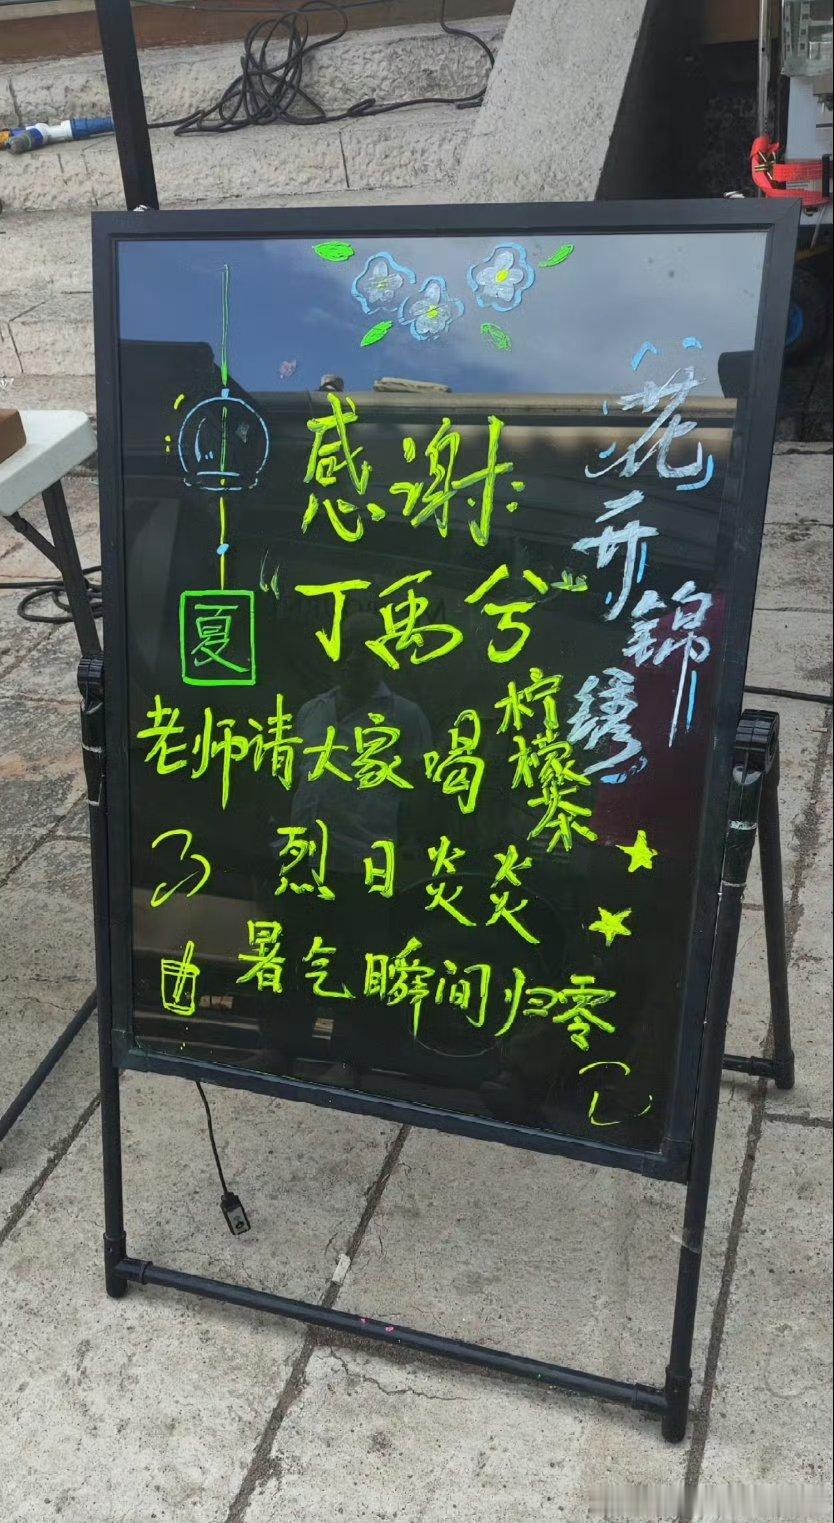 花开锦绣
感谢
"丁禹兮"
夏
老师请大家喝柠檬茶
烈日炎炎
暑气瞬间归零